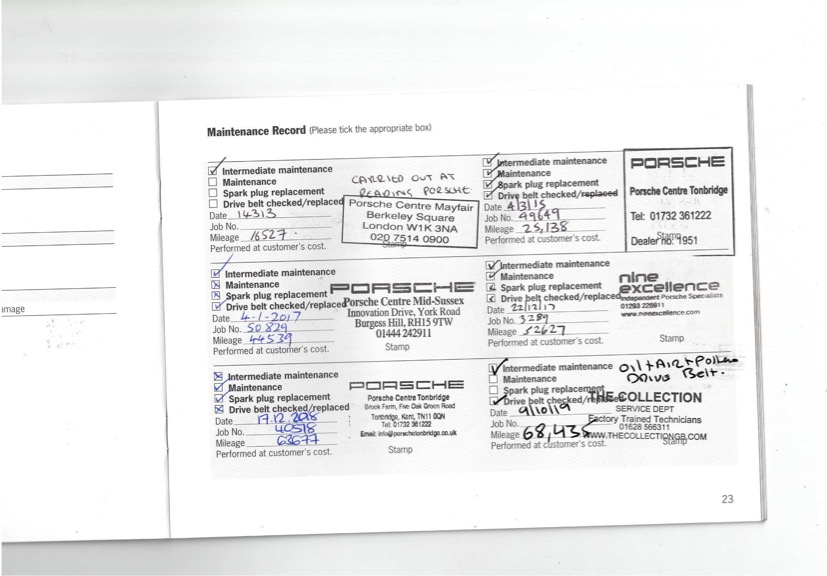 amage
Maintenance Record (Please tick the appropriate box)
Intermediate maintenance
Maintenance
Spark plug replacement
Drive belt checked/replaced
Date 14313
Job No.
Mileage 16527.
Performed at customer's cost.
CARRIED OUT AT
READING PORSCHE
Porsche Centre Mayfair
Berkeley Square
London W1K 3NA
020 7514 0900
Stamp
Intermediate maintenance
Maintenance
Spark plug replacement
Drive belt checked/replaced
Date 4/3/15
Job No. 49649
Mileage 25,138
Performed at customer's cost.
PORSCHE
Porsche Centre Tonbridge
Tel: 01732 361222
Stamp
Dealer no. 1951
Intermediate maintenance
Maintenance
Spark plug replacement
Drive belt checked/replaced
Date 4-1-2017
Job No. 50829
Mileage 44539
Performed at customer's cost.
PORSCHE
Porsche Centre Mid-Sussex
Innovation Drive, York Road
Burgess Hill, RH15 9TW
01444 242911
Stamp
Intermediate maintenance
Maintenance
Spark plug replacement
Drive belt checked/replaced
Date 22/12/17
Job No. 3289
Mileage 52627
Performed at customer's cost.
nine
excellence
Independent Porsche Specialists
01293 226911
www.nineexcellence.com
Stamp
Intermediate maintenance
Maintenance
Spark plug replacement
Drive belt checked/replaced
Date 17.12.2018
Job No. 40518
Mileage 63677
Performed at customer's cost.
PORSCHE
Porsche Centre Tonbridge
Brook Farm, Five Oak Green Road
Tonbridge, Kent, TN11 0QN
Tel: 01732 361222
Email: info@porschetonbridge.co.uk
Stamp
Intermediate maintenance
Maintenance
Spark plug replacement
Drive belt checked/replaced
Date 9/10/19
Job No.
Mileage 68,435
Performed at customer's cost.
Oil + Air + Pollen
Drive Belt.
THE COLLECTION
SERVICE DEPT
Factory Trained Technicians
01628 566311
WWW.THECOLLECTIONGB.COM
Stamp
23